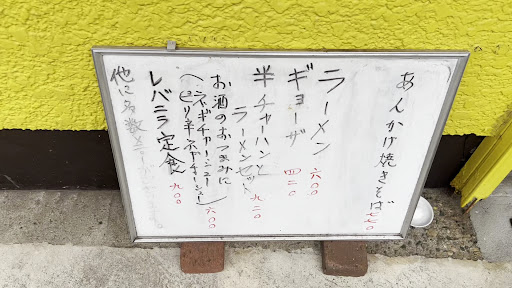 あんかけ焼きそば 七七〇
ラーメン 六〇〇
ギョーザ 四二〇
半チャーハンと
ラーメンセット 九二〇
お酒のおつまみに
(ネギチャーシュー 六〇〇
レバニラ定食 九〇〇
他に多数